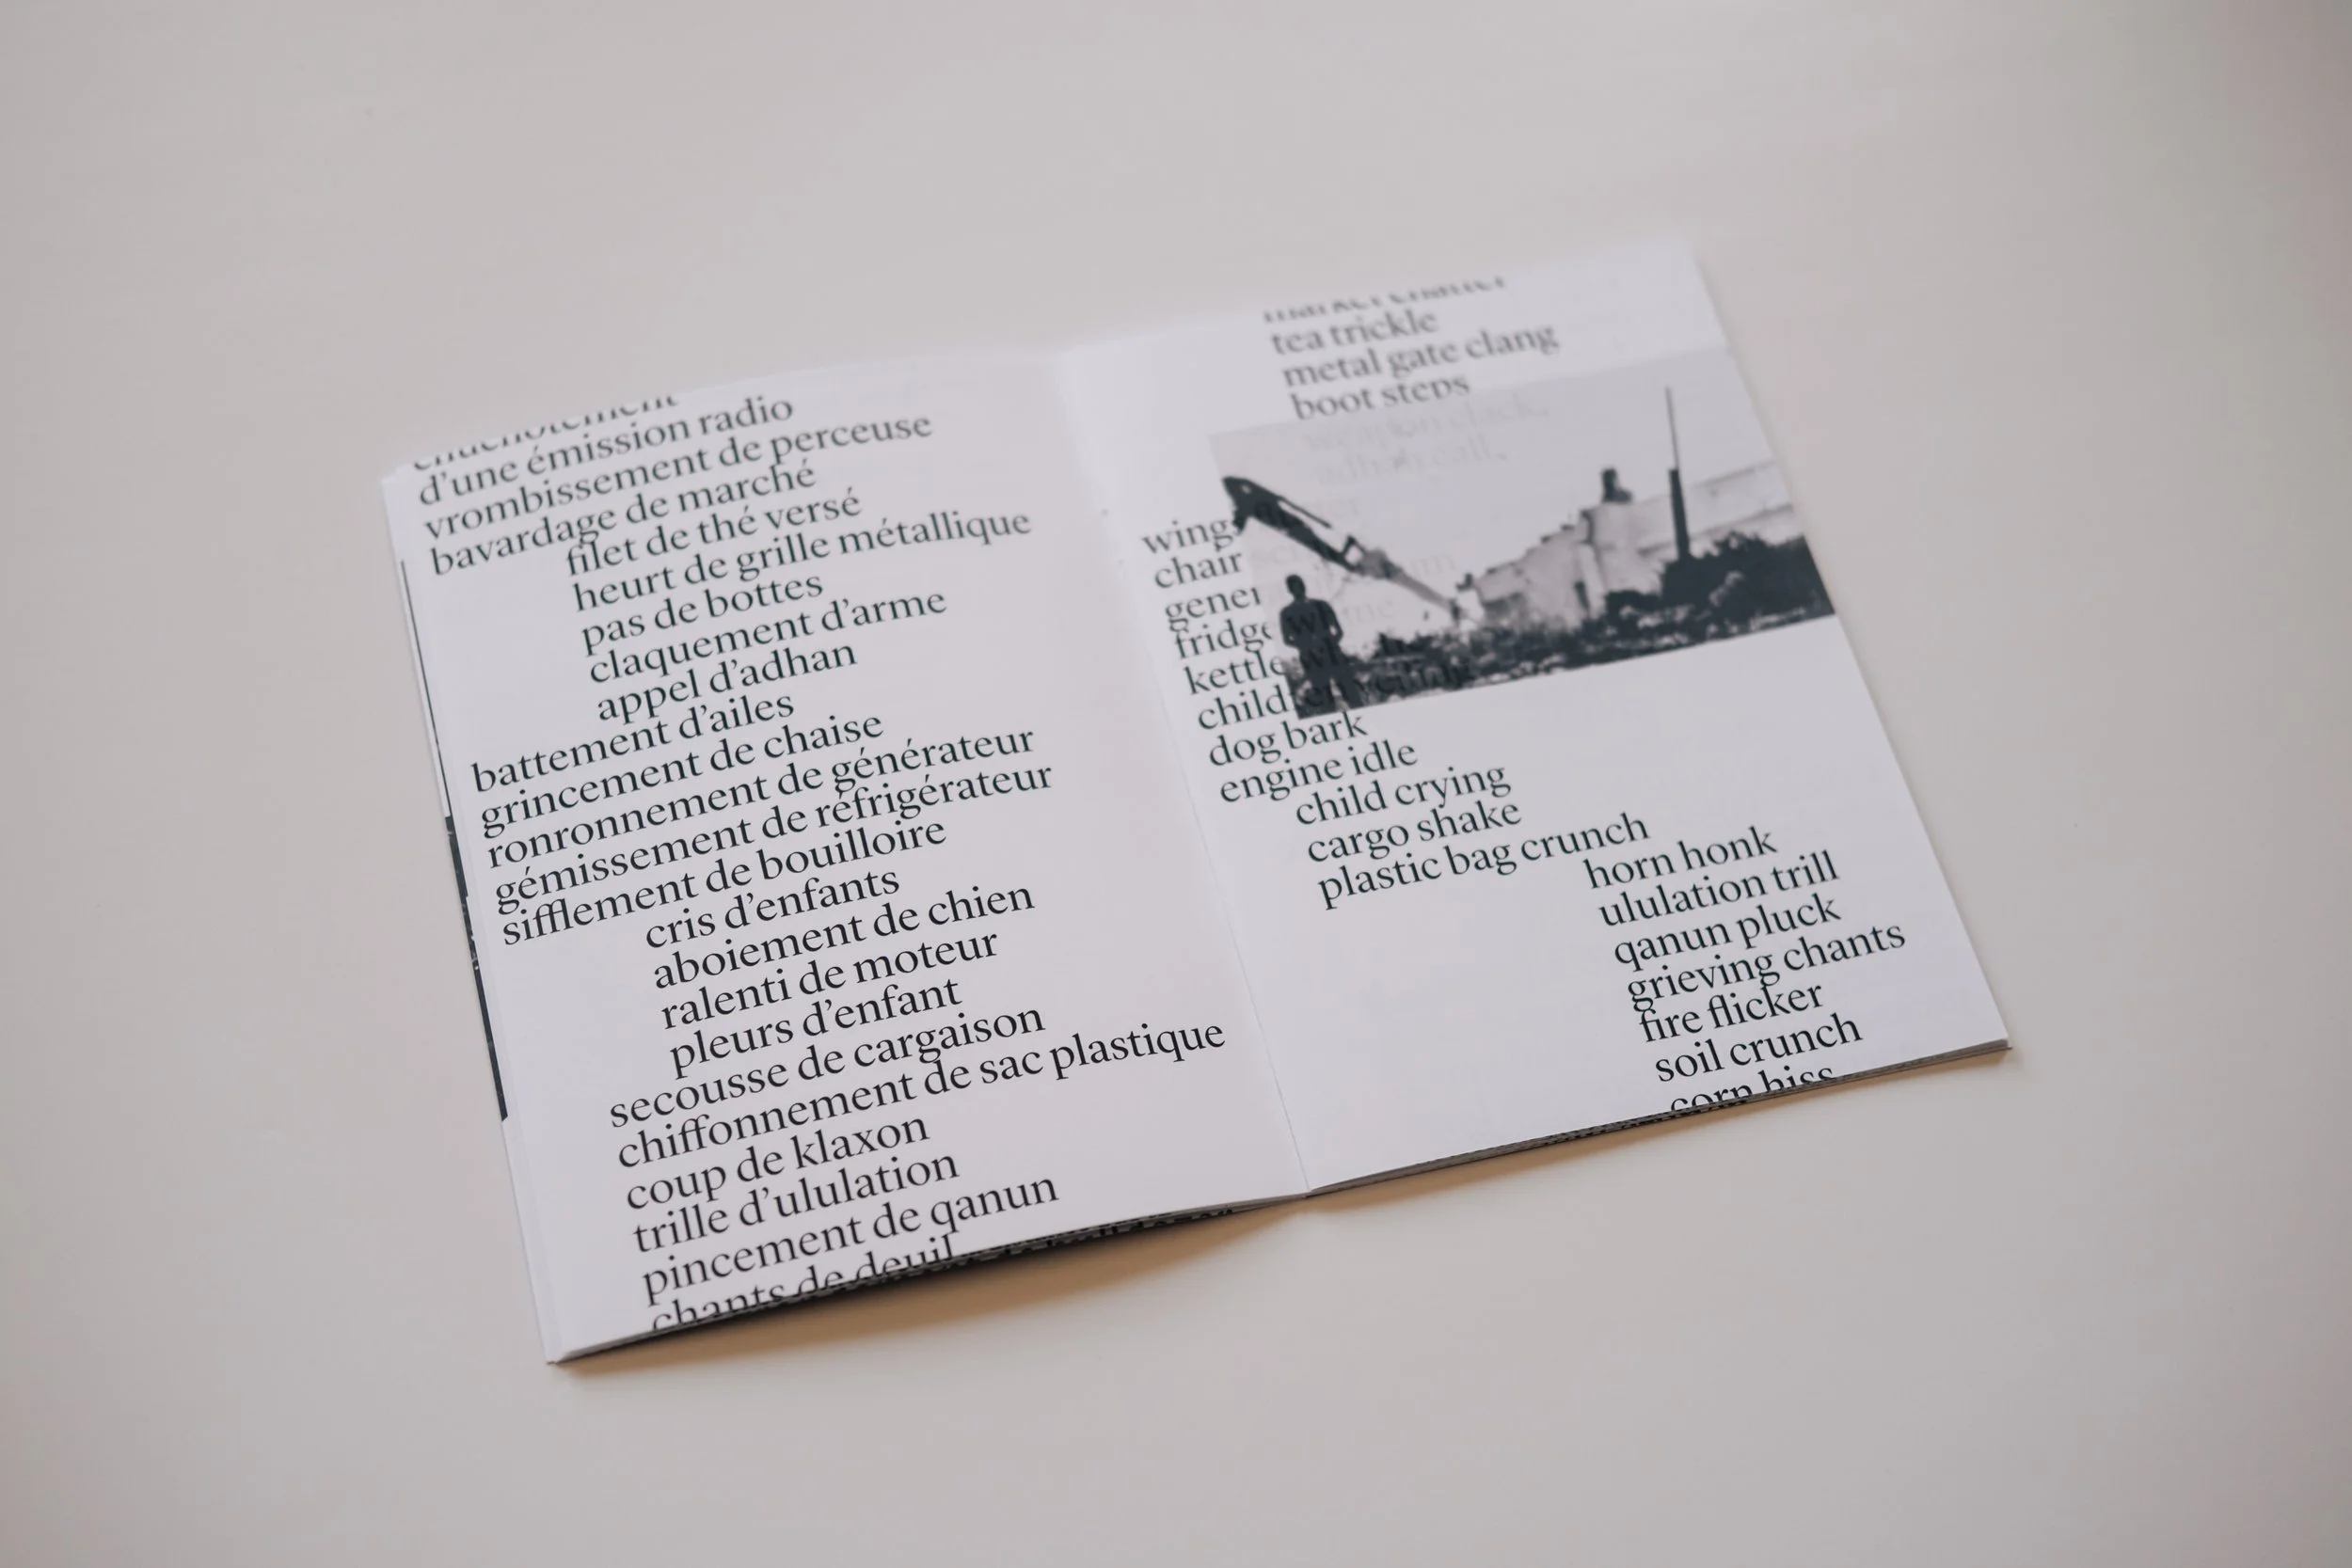 chuchotement
d’une émission radio
vrombissement de perceuse
bavardage de marché
filet de thé versé
heurt de grille métallique
pas de bottes
claquement d’arme
appel d’adhan
battement d’ailes
grincement de chaise
ronronnement de générateur
gémissement de réfrigérateur
sifflement de bouilloire
cris d’enfants
aboiement de chien
ralenti de moteur
pleurs d’enfant
secousse de cargaison
chiffonnement de sac plastique
coup de klaxon
trille d’ululation
pincement de qanun
chants de deuil
market chatter
tea trickle
metal gate clang
boot steps
weapon clack,
adhan call,
chair
fridge
kettle
children yelling
dog bark
engine idle
child crying
cargo shake
plastic bag crunch
horn honk
ululation trill
qanun pluck
grieving chants
fire flicker
soil crunch
corn hiss